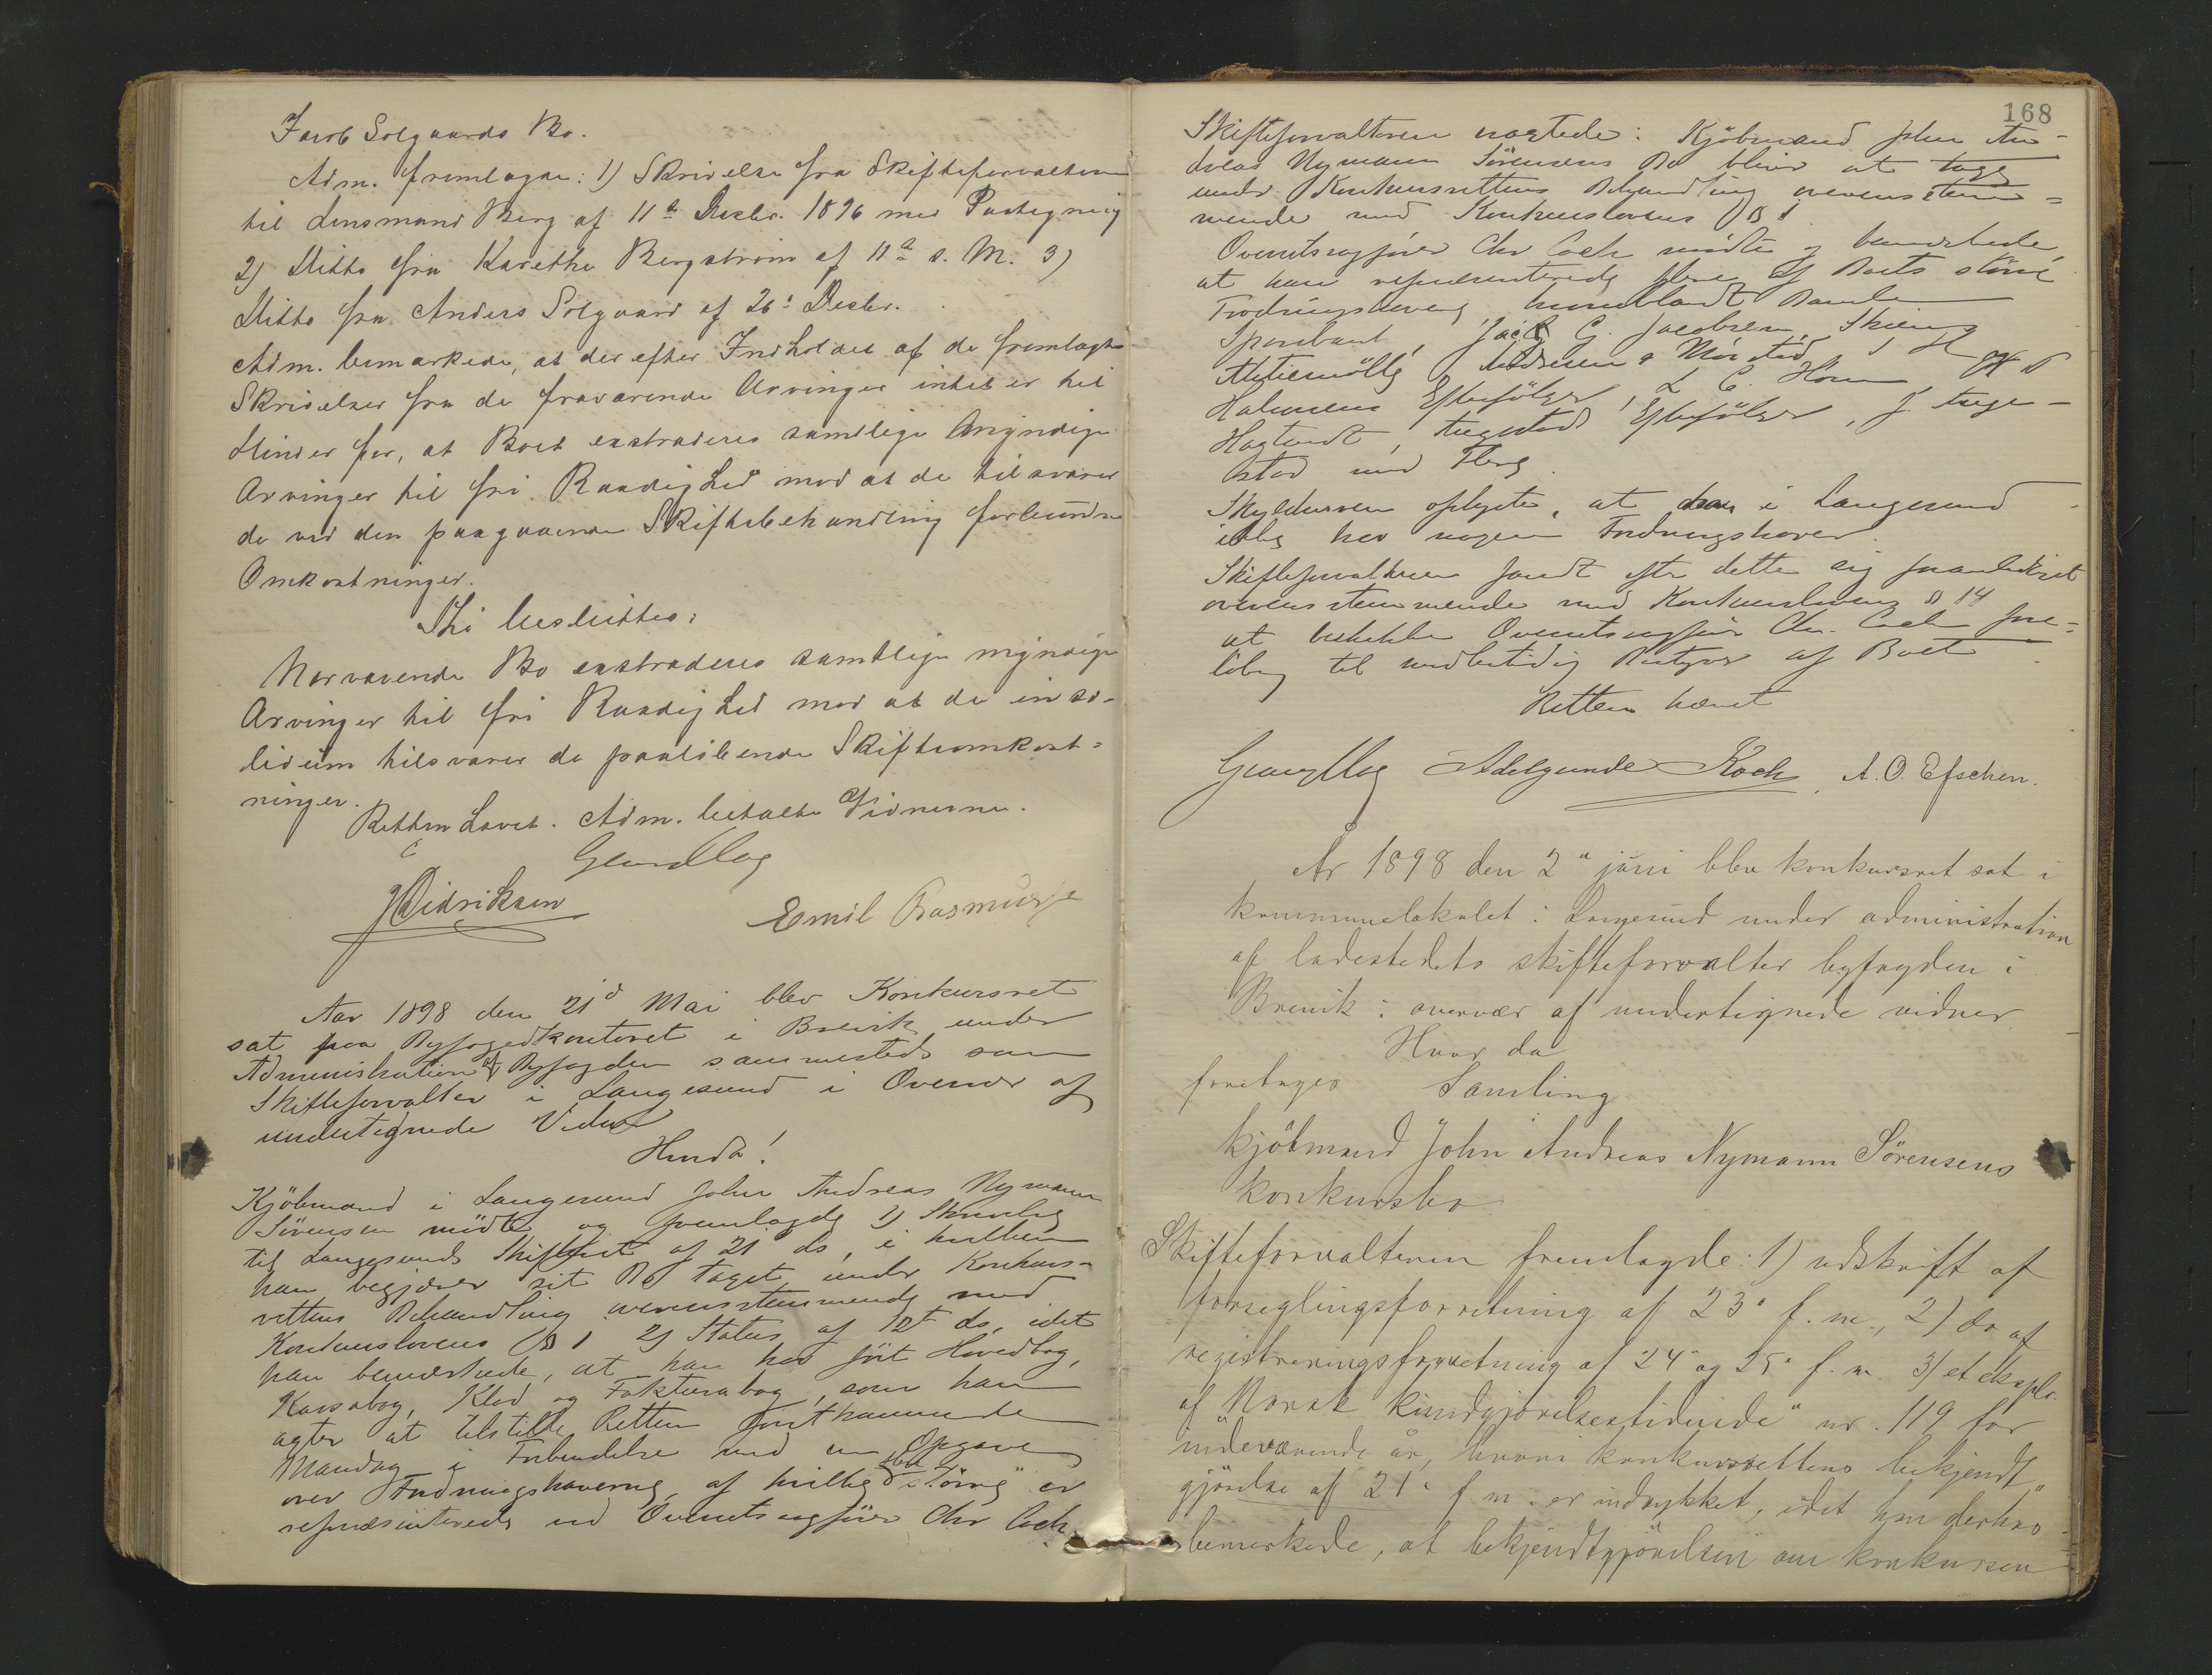 Jacob Solgaards Bo.
Adm. fremlagde: 1) Skrivelse fra Skifteforvalteren
til Lensmand Berg af 11te Decbr. 1896 med Paategning
2) Ditto fra Karethe Bergstrøm af 11te s. M. 3)
Ditto fra Anders Solgaard af 26de Decbr.
Adm. bemærkede, at der efter Indholdet af de fremlagte
Skrivelser fra de fraværende Arvinger intet er til
Hinder for, at Boet extraderes samtlige myndige
Arvinger til fri Raadighed mod at de tilsvarer
de ved den paagaaende Skiftebehandling forbundne
Omkostninger.
Thi besluttes:
Nærværende Bo extraderes samtlige myndige
Arvinger til fri Raadighed mod at de in so-
lidum tilsvarer de paaløbende Skifteomkost=
ninger.
Retten hævet. Adm. betalte Vidnerne.
HDidriksen
Emil Rasmussen
Aar 1898 den 21de Mai blev Konkursret
sat paa Byfogedkontoret i Brevik under
Administration af Byfogden sammesteds som
Skifteforvalter i Langesund i Overvær af
undertegnede Vidner
Hvorda!
Kjöbmand i Langesund John Andreas Nymann
Sörensen mödte og fremlagde 1) Skrivelse
til Langesunds Skifteret af 21 ds, i hvilken
han begjærer sit Bo taget under Konkurs-
rettens Behandling overensstemmende med
Konkurslovens § 1 2) Status af 12te ds, idet
han bemærkede, at han har fört Hovedbog,
Kassabog, Klad og Fakturabog, som han
agter at tilstille Retten førstkommende
Mandag i Forbindelse med en Opgave
over Fordringshaverne, af hvilke flere større er
repræsenterede ved Overretssagfører Chr Coch.
168
Skifteforvalteren vragtede: Kjöbmand John An-
dreas Nymann Sörensens Bo bliver at tage
under Konkursrettens Behandling overensstem=
mende med Konkurslovens § 1
Overretssagfører Chr Coch mödte og bemærkede,
at han repræsenterede flere af Boets större
Fordringshavere, hvoriblandt Bamle
Sparebank, Jacob C. Jacobsen, Skiens
Aktiemölle, Andresen & Mörstad,
Halvorsens Efterfölger, L C. Horn
Hogtvedt, Augestads Efterfölger, J. Auge-
stad med Flere.
Skyldneren oplyste, at han i Langesund
ikke har nogen Fordringshaver.
Skifteforvalteren fandt efter dette sig foranlediget
overensstemmende med Konkurslovens § 14
at beskikke Overretssagfører Chr. Coch fore=
löbig til midlertidig Bestyrer af Boet
Retten hævet
Adelgunde Koch, A. O. Efschen.
År 1898 den 2de juni blev konkursret sat i
kommunelokalet i Langesund under administration
af ladestedets skifteforvalter byfogden i
Brevik i overvær af undertegnede vidner
Hvor da
foretages Samling
kjöbmand John Andreas Nymann Sörensens
konkursbo
Skifteforvalteren fremlagde: 1) udskrift af
forseglingsforretning af 23de f. m., 2) do af
registreringsforretning af 24de og 25de f. m. 3) et expl.
af "Norsk kundgjörelsestidende" nr. 119 for
indeværende år, hvori konkursrettens bekjendt
gjörelse af 21de f. m. er indrykket, idet han derhos
bemerkede, at bekjendtgjörelsen om konkursen